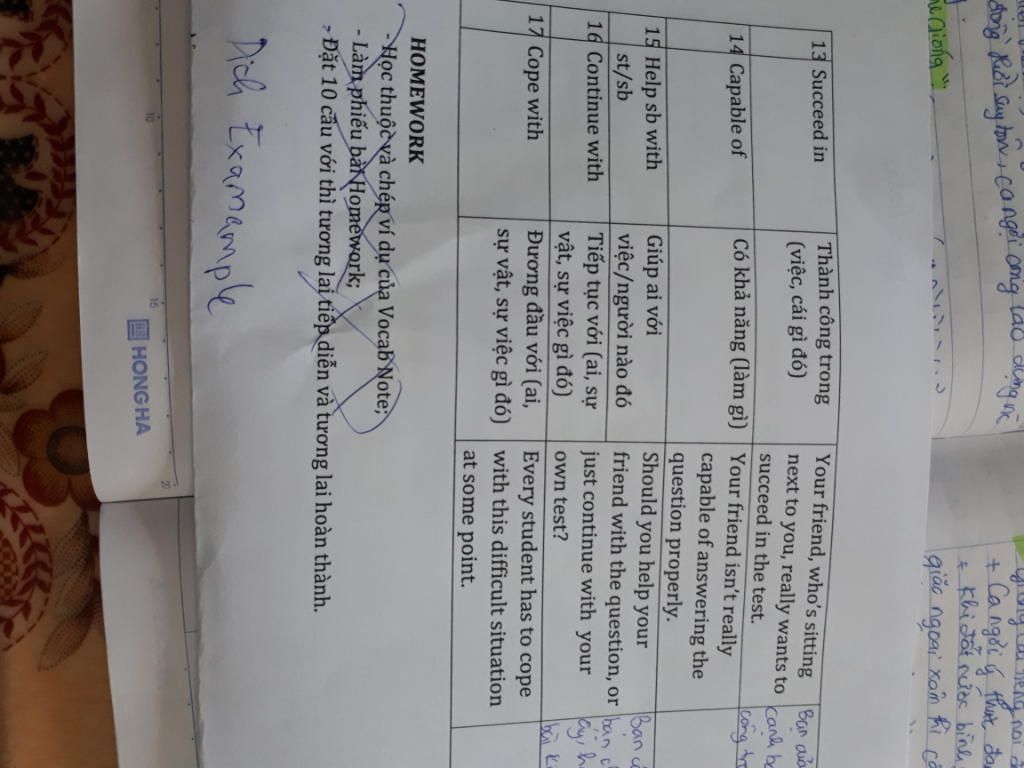 13 Succeed in
Thành công trong
(việc, cái gì đó)
Your friend, who's sitting
next to you, really wants to
succeed in the test.
Bạn của
cạnh
14 Capable of
Có khả năng (làm gì)
Your friend isn't really
capable of answering the
question properly.
15 Help sb with
st/sb
Giúp ai với
việc/người nào đó
Should you help your
friend with the question, or
just continue with your
own test?
Bạn
bạn
16 Continue with
Tiếp tục với (ai, sự
vật, sự việc gì đó)
17 Cope with
Đương đầu với (ai,
sự vật, sự việc gì đó)
Every student has to cope
with this difficult situation
at some point.
HOMEWORK
- Học thuộc và chép ví dụ của Vocab Note;
- Làm phiếu bài Homework;
- Đặt 10 câu với thì tương lai tiếp diễn và tương lai hoàn thành.
Dịch Examample
10
15
20
HONGHA
giống
+ Ca ngợi ý thức
+ Khi đất nước bình
giặc ngoại xâm thì